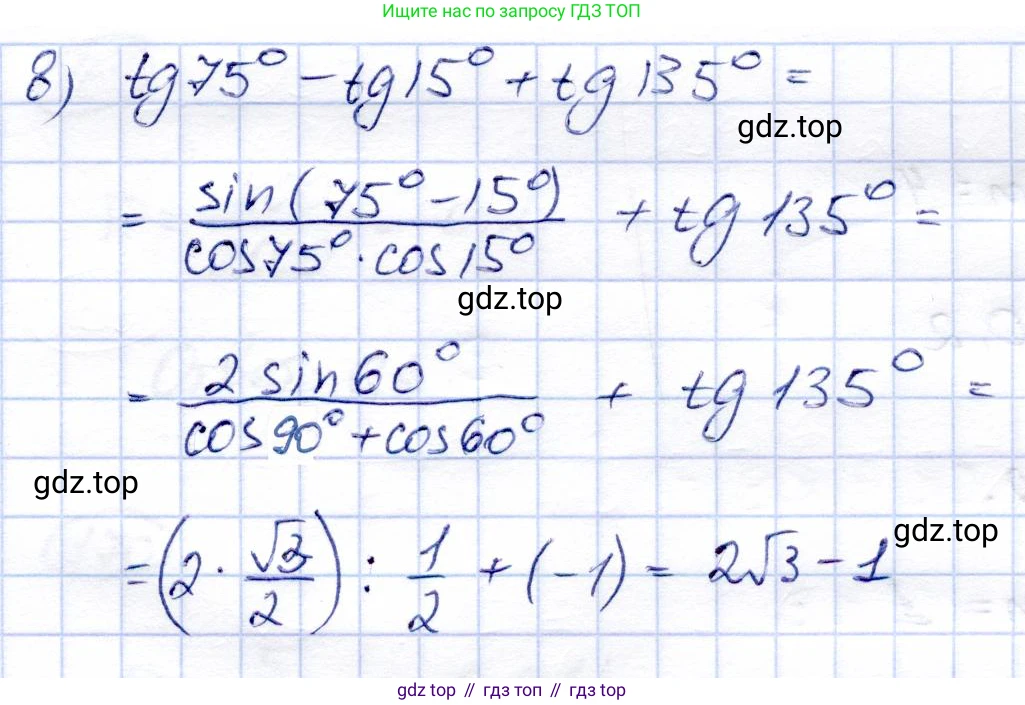 Ищите нас по запросу ГДЗ ТОП
в) tg 75° - tg 15° + tg 135° =
gdz.top
= sin(75° - 15°) / cos 75° · cos 15° + tg 135° =
gdz.top
= 2 sin 60° / cos 90° + cos 60° + tg 135° =
gdz.top
= (2 · √3/2) : 1/2 + (-1) = 2√3 - 1
gdz.top
gdz top // гдз топ // gdz top